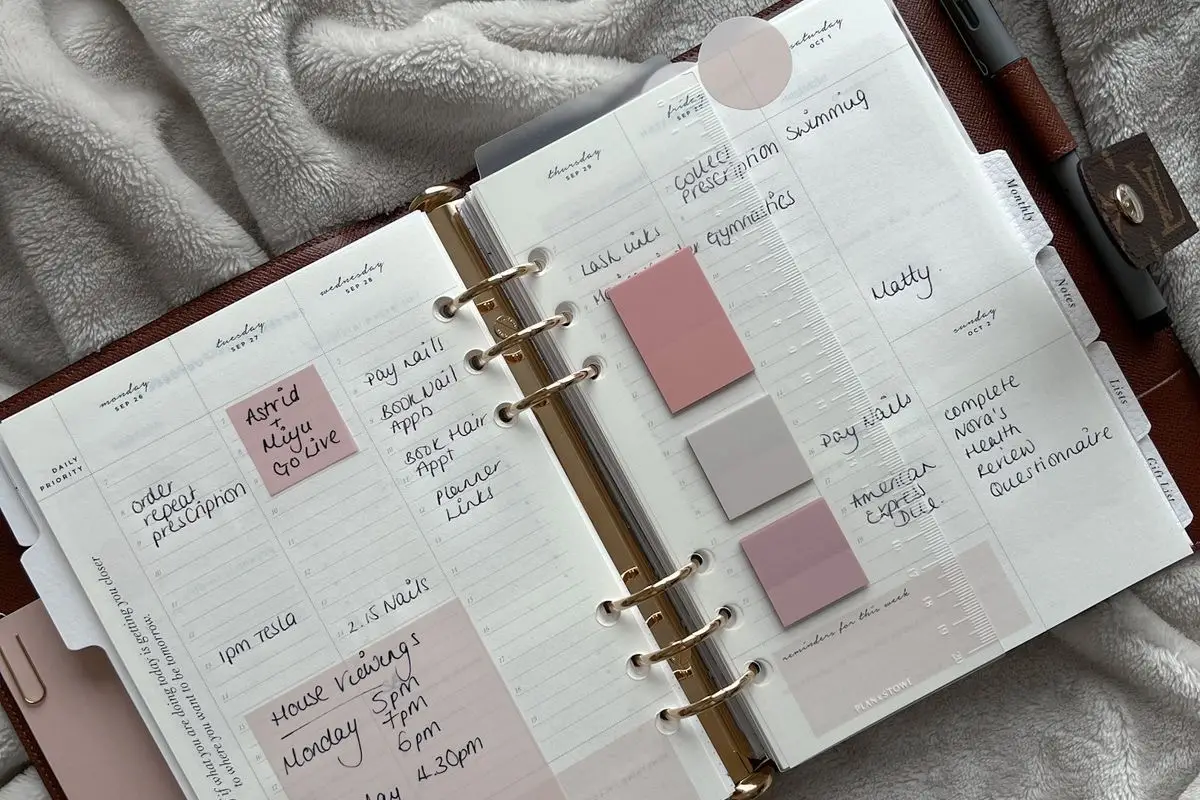 monday
SEP 26
DAILY
PRIORITY
order
repeat
prescription
1pm Tesla
if what you are doing today is getting you closer
to where you want to be tomorrow.
tuesday
SEP 27
Astrid
+
Miyu
GO Live
2.15 Nails
House Viewings
Monday 5pm
7pm
6pm
4.30pm
wednesday
SEP 28
Pay Nails
BOOK Nail
Appt
BOOK Hair
Appt
Planner
Links
thursday
SEP 29
Lash Links
friday
SEP
Collect
Prescription
Gymnastics
Pay Nails
American
Express
Due.
saturday
OCT 1
Swimming
Matty.
sunday
OCT 2
complete
Nova's
Health
Review
Questionnaire
reminders for this week
PLANKSTOWE
Monthly
Notes
Lists
Gift List